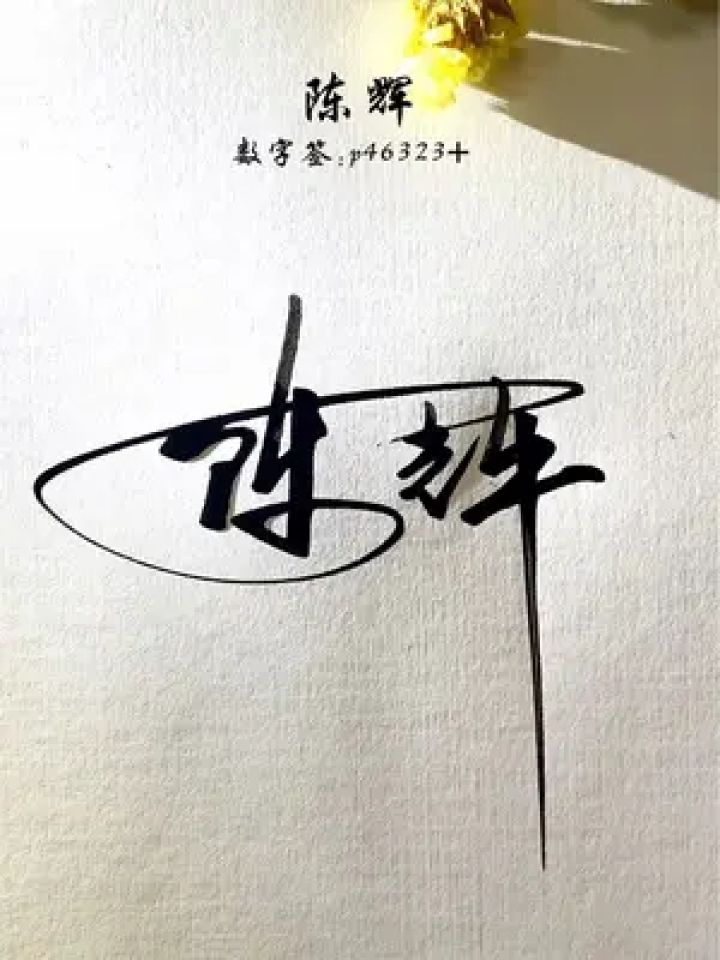 陈辉
数字签:p46323+
陈辉